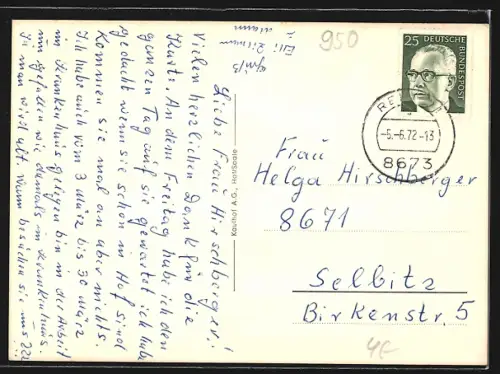 Liebe Frau Hirschberger!
Vielen herzlichen Dank für die
Karte. An dem Freitag habe ich den
ganzen Tag auf sie gewartet ich hab
gedacht wenn sie schon in Hof sind
kommen sie mal an aber nichts.
Ich habe mich vom 3 März bis 30 März
im Krankenhaus gelegen bin in der Arbeit
mir gefallen wie damals in Krankenhaus.
Ja man wird alt. Wann besuchen sie uns
Grüß
Elli
u.
950
25
DEUTSCHE
BUNDESPOST
-5.-6.72-13
8673
Kaufhof A.G., Hof/Saale
Frau
Helga Hirschberger
8671
Selbitz
Birkenstr. 5
4€